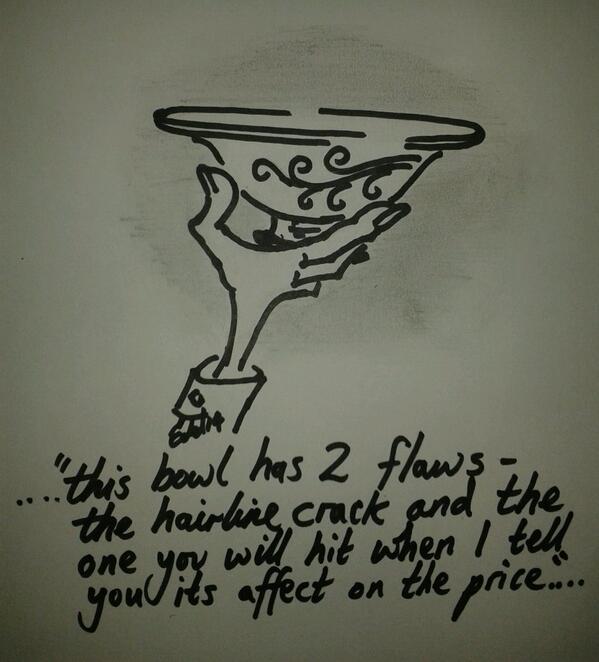 ...."this bowl has 2 flaws -
the hairline crack and the
one you will hit when I tell
you its affect on the price"....